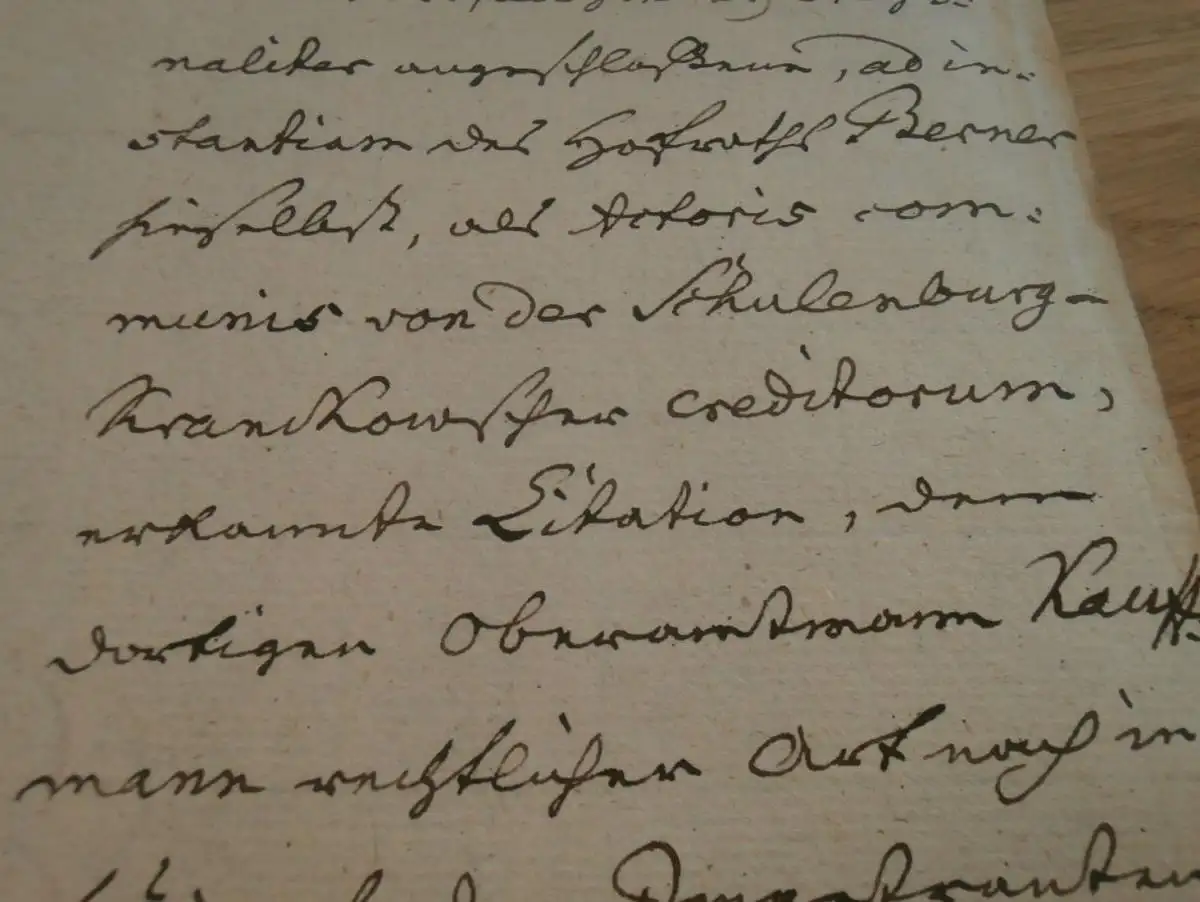 naliter angeschloßene, ad in:
stantiam des Hofraths Berner
hieselbst, als Actoris com:
munis von der Schulenburg-
Kranckowscher Creditorum,
erkannte Citation, dem
dortigen Oberamtmann Kauff
mann rechtlicher Art nach in